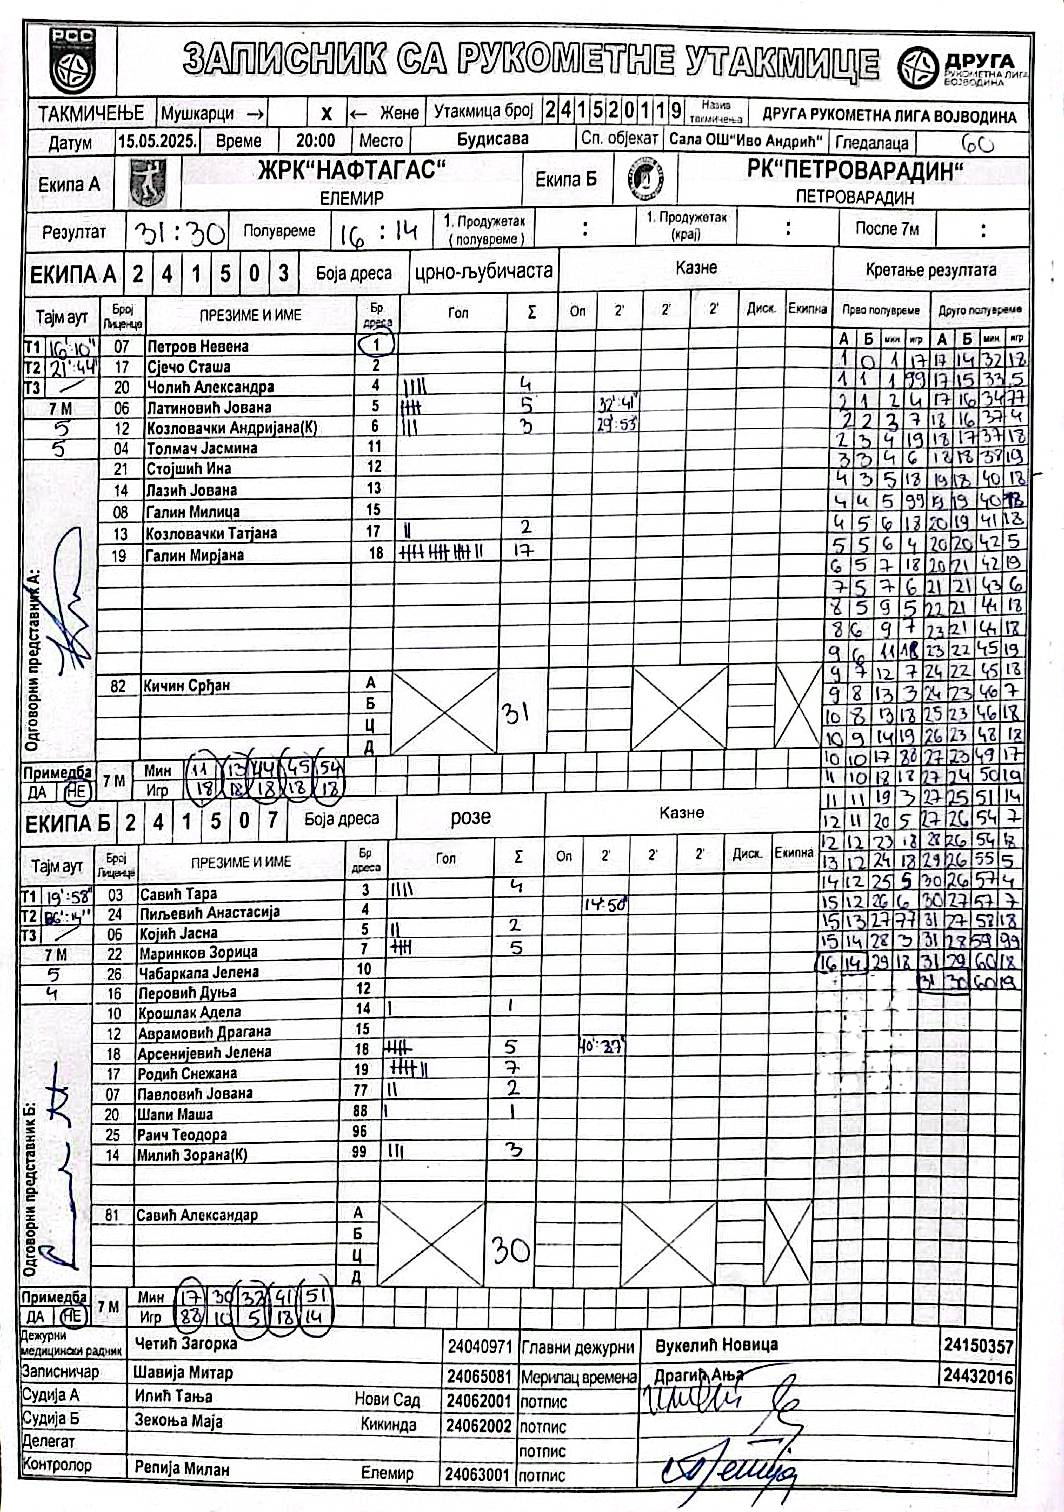 РСС
ЗАПИСНИК СА РУКОМЕТНЕ УТАКМИЦЕ
ДРУГА
РУКОМЕТНА ЛИГА
ВОЈВОДИНА
ТАКМИЧЕЊЕ Мушкарци → X ← Жене Утакмица број 2 4 1 5 2 0 1 1 9 Назив такмичења ДРУГА РУКОМЕТНА ЛИГА ВОЈВОДИНА
Датум 15.05.2025. Време 20:00 Место Будисава Сп. објекат Сала ОШ“Иво Андрић“ Гледалаца 60
Екипа А ЖРК“НАФТАГАС“ ЕЛЕМИР Екипа Б РК“ПЕТРОВАРАДИН“ ПЕТРОВАРАДИН
Резултат 31:30 Полувреме 16:14 1. Продужетак (полувреме) : 1. Продужетак (крај) : После 7м :
ЕКИПА А 2 4 1 5 0 3 Боја дреса црно-љубичаста Казне Кретање резултата
Тајм аут Број Лиценце ПРЕЗИМЕ И ИМЕ Бр дреса Гол Σ Оп 2' 2' 2' Диск. Екипна Прво полувреме Друго полувреме
А Б мин игр А Б мин игр
Т1 16':10" 07 Петров Невена 1
Т2 21':44" 17 Сјечо Сташа 2
Т3 — 20 Чолић Александра 4 IIII 4
7 М 06 Латиновић Јована 5 IIII 5 32':41"
5 12 Козловачки Андријана(К) 6 III 3 29':53"
5 04 Толмач Јасмина 11
21 Стојшић Ина 12
14 Лазић Јована 13
08 Галин Милица 15
13 Козловачки Татјана 17 II 2
19 Галин Мирјана 18 17
Одговорни представник А:
82 Кичин Срђан А
Б
Ц
Д
31
Примедба ДА НЕ 7 М
Мин 11 13 44 45 54
Игр 18 18 18 18 18
1 0 1 17 17 14 32 18
1 1 1 99 17 15 33 5
2 1 2 4 17 16 34 77
2 2 3 7 18 16 37 4
2 3 4 19 18 17 37 18
3 3 4 6 18 18 38 19
4 3 5 18 19 18 40 18
4 4 5 99 19 19 40 18
4 5 6 18 20 19 41 18
5 5 6 4 20 20 42 5
6 5 7 18 20 21 42 19
7 5 7 6 21 21 43 6
8 5 9 5 22 21 44 18
8 6 9 7 23 21 44 18
9 6 11 18 23 22 45 19
9 7 12 7 24 22 45 18
9 8 13 3 24 23 46 7
10 8 13 18 25 23 46 18
10 9 14 19 26 23 48 18
10 10 17 88 27 23 49 17
11 10 18 18 27 24 50 19
11 11 19 3 27 25 51 14
12 11 20 5 27 26 54 7
12 12 23 18 28 26 54 18
13 12 24 18 29 26 55 5
14 12 25 5 30 26 57 4
15 12 26 6 30 27 57 7
15 13 27 77 31 27 58 18
15 14 28 3 31 28 59 99
16 14 29 18 31 29 60 18
31 30 60 19
ЕКИПА Б 2 4 1 5 0 7 Боја дреса розе Казне
Тајм аут Број Лиценце ПРЕЗИМЕ И ИМЕ Бр дреса Гол Σ Оп 2' 2' 2' Диск. Екипна
Т1 19':58" 03 Савић Тара 3 IIII 4
Т2 24 Пиљевић Анастасија 4 14':50"
Т3 — 06 Којић Јасна 5 II 2
7 М 22 Маринков Зорица 7 5
5 26 Чабаркапа Јелена 10
4 16 Перовић Дуња 12
10 Крошлак Адела 14 I 1
12 Аврамовић Драгана 15
18 Арсенијевић Јелена 18 5 40':37"
17 Родић Снежана 19 7
07 Павловић Јована 77 II 2
20 Шапи Маша 88 I 1
25 Раич Теодора 96
14 Милић Зорана(К) 99 III 3
Одговорни представник Б:
81 Савић Александар А
Б
Ц
Д
30
Примедба ДА НЕ 7 М
Мин 17 30 32 41 51
Игр 88 10 5 18 14
Дежурни медицински радник Четић Загорка 24040971 Главни дежурни Вукелић Новица 24150357
Записничар Шавија Митар 24065081 Мерилац времена Драгић Ања 24432016
Судија А Илић Тања Нови Сад 24062001 потпис
Судија Б Зекоња Маја Кикинда 24062002 потпис
Делегат потпис
Контролор Репија Милан Елемир 24063001 потпис